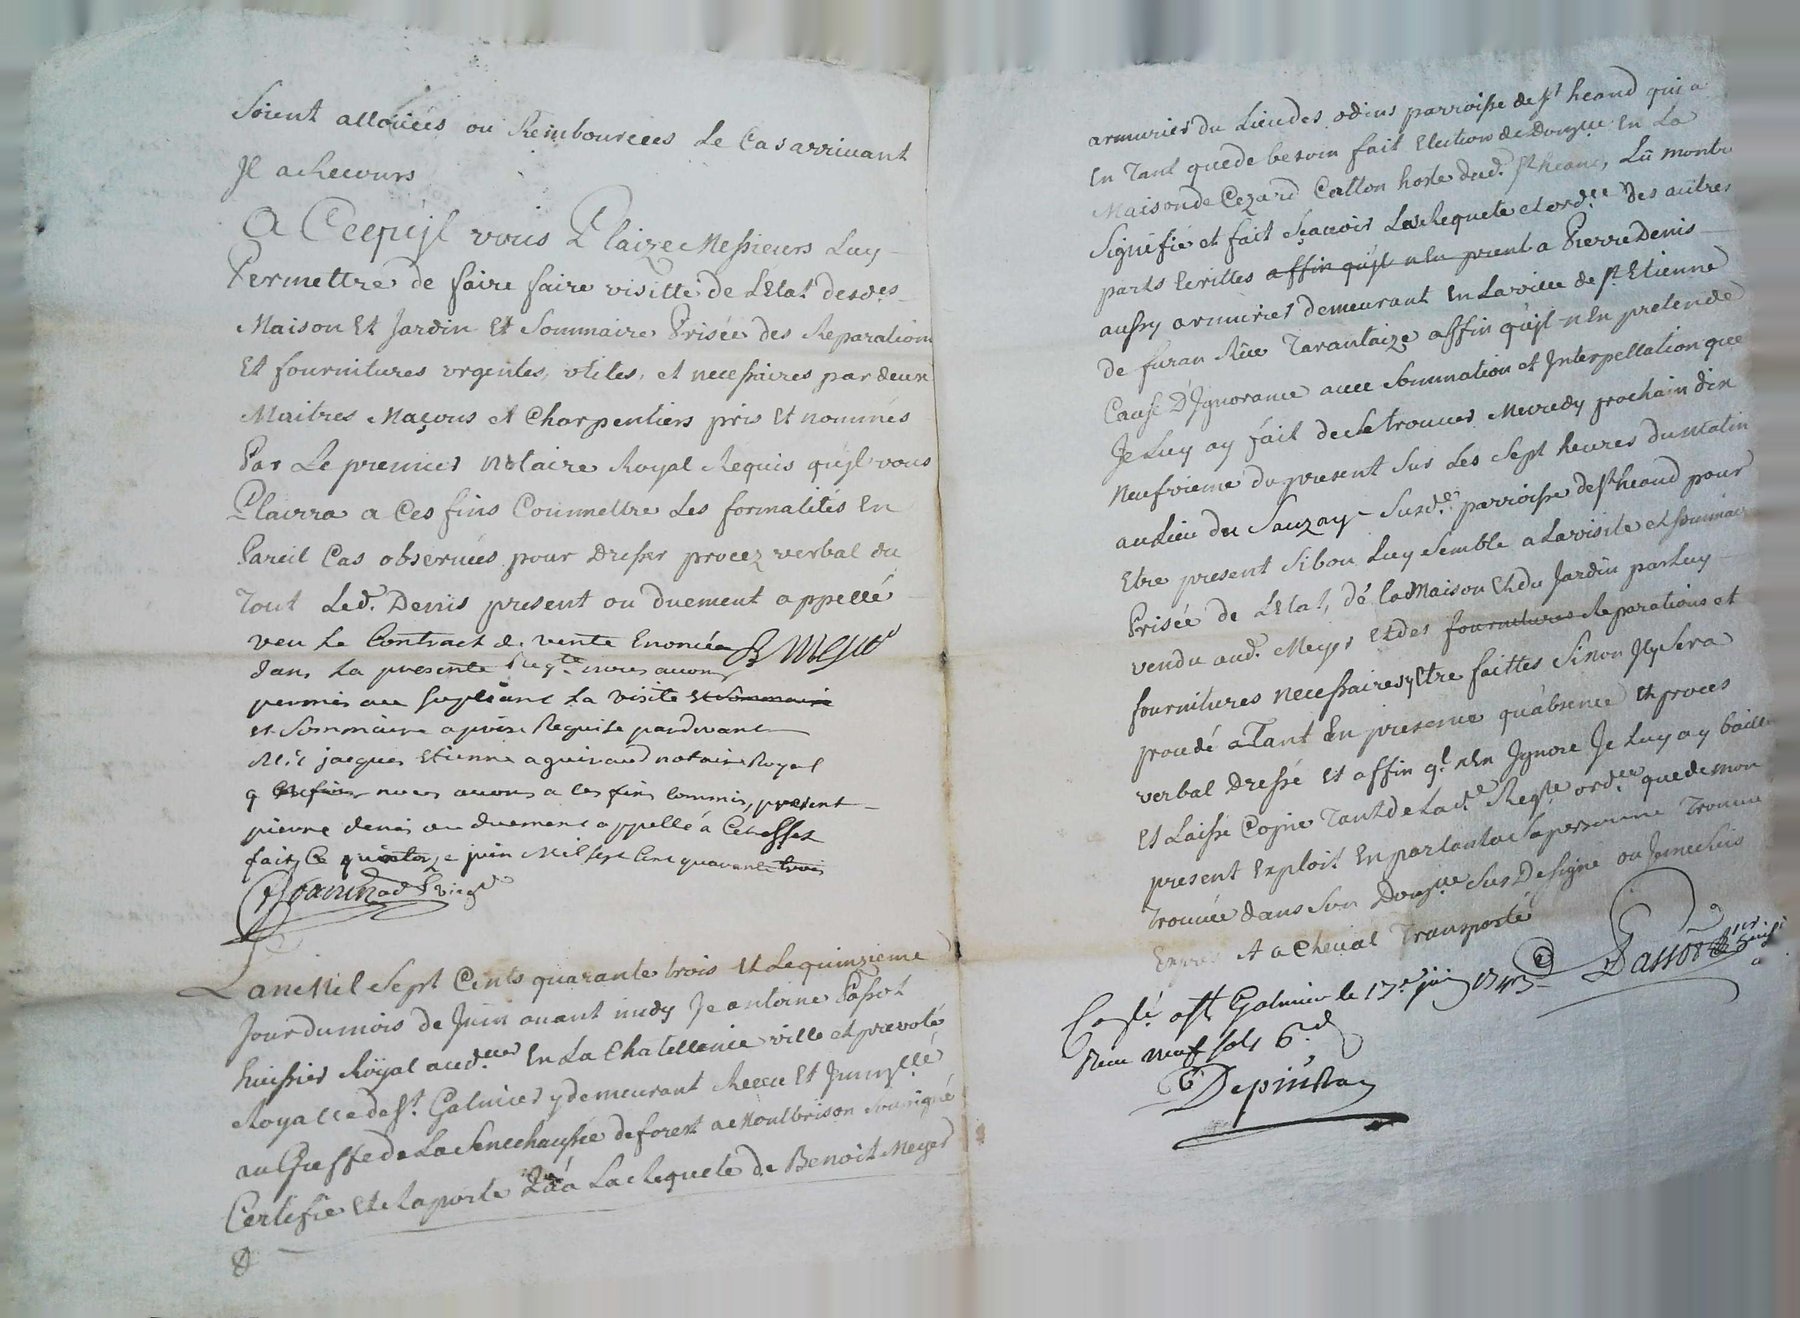 Soient alloüées ou Remboursees Le Cas arrivant
Jl a Recours
A Ce qu'jl vous Plaize Messieurs Luy
Permettre de faire faire visitte de L'Etat desd.es
Maison Et Jardin Et Sommaire Prisée des Reparations
Et fournitures urgentes, utiles, et necessaires par deux
Maitres Maçons et Charpentiers pris Et nommés
Par Le premier Notaire Royal Requis qu'jl vous
Plairra a Ces fins Commettre Les formalités En
Pareil Cas observées pour Dresser procez verbal du
Tout Led. Denis present ou duement appellé
veu Le Contract de vente Enoncée B Meyer
dans La presente Reqte nous avons
permis au supliant La visite et sommaire
et Sommaire aprise Requise pardevant
Me jacques Etienne aguiraud notaire Royal
q nous avons a Ces fins Commis, present
pierre denis ou duement appellé à Cet effet
fait Ce quinze juin Mil sept Cent quarante trois
L'an Mil Sept Cents quarante trois Et Le quinzieme
Jour du mois de Juin avant midy Je antoine Passot
huissier Royal aud.cier En La Chatellenie ville et prevoté
Royalle de St. Galmier y demeurant Receu Et Immatlé
au Greffe de La Senechaussée de forest a Montbrison Soussigné
Certifie Et Raporte qu'á La Requete de Benoit Meyer
armurier du Lieu des odins parroisse de St heand qui a
En Tant que de besoin fait Election de Domlle En La
Maison de Cezard Catton hoste dud. St heand, Lü montré
Signifié et fait Sçavoir La Requete et ord.ce Des autres
parts Ecrittes affin qu'jl n'En prent a Pierre Denis
aussy armurier demeurant En La ville de St. Etienne
de furan Rüe Tarantaize affin qu'jl n'En pretende
Cause D'Ignorance avec Sommation et Interpellation que
Je Luy ay fait de Se trouver Mecredy prochain dix
Neufvieme du present Sur Les Sept heures du Matin
au Lieu du Sauzay Susd.e parroisse de St heand pour
Etre present Si bon Luy Semble a La visite et Sommaire
Prisée de L'Etat, de la Maison Et du Jardin par Luy
vendu aud. Meyer Et des fournitures Reparations et
fournitures necessaires y Etre faittes Sinon Il y Sera
procedé a Tant En presence qu'absence Et proces
verbal Dressé Et affin ql n'En Ignore Je Luy ay baillé
Et Laissé Copie Tant de Lad.e Reqte ord.ce que de mon
present Exploit En parlant a Sa personne Trouvée
Trouvée dans Son Domlle Sus Designé ou Je me Suis
Exprès Et a Cheval Transporté
Passot
Conlé a St Galmier le 17e juin 1743
Receu neuf sols 6d
Depinhac